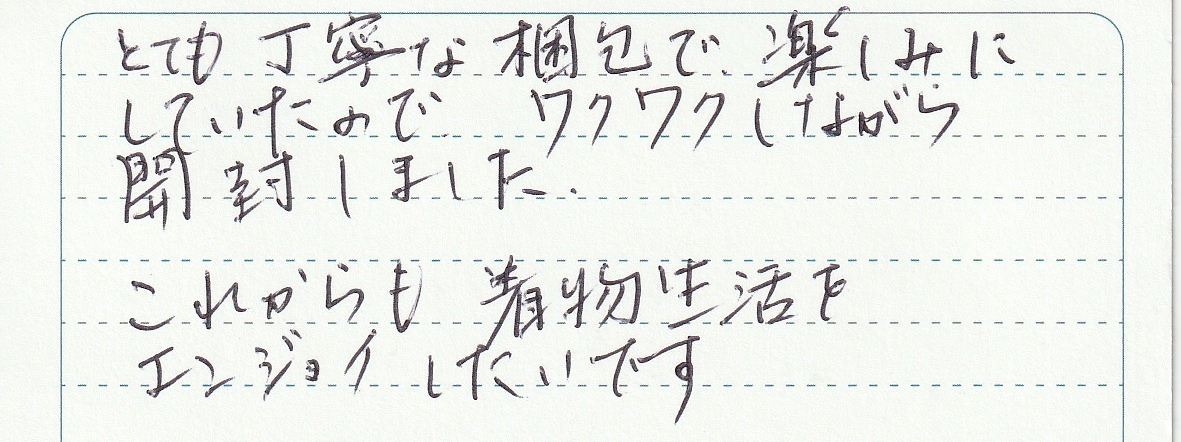 とても丁寧な梱包で、楽しみに
していたので、ワクワクしながら
開封しました。
これからも着物生活を
エンジョイしたいです